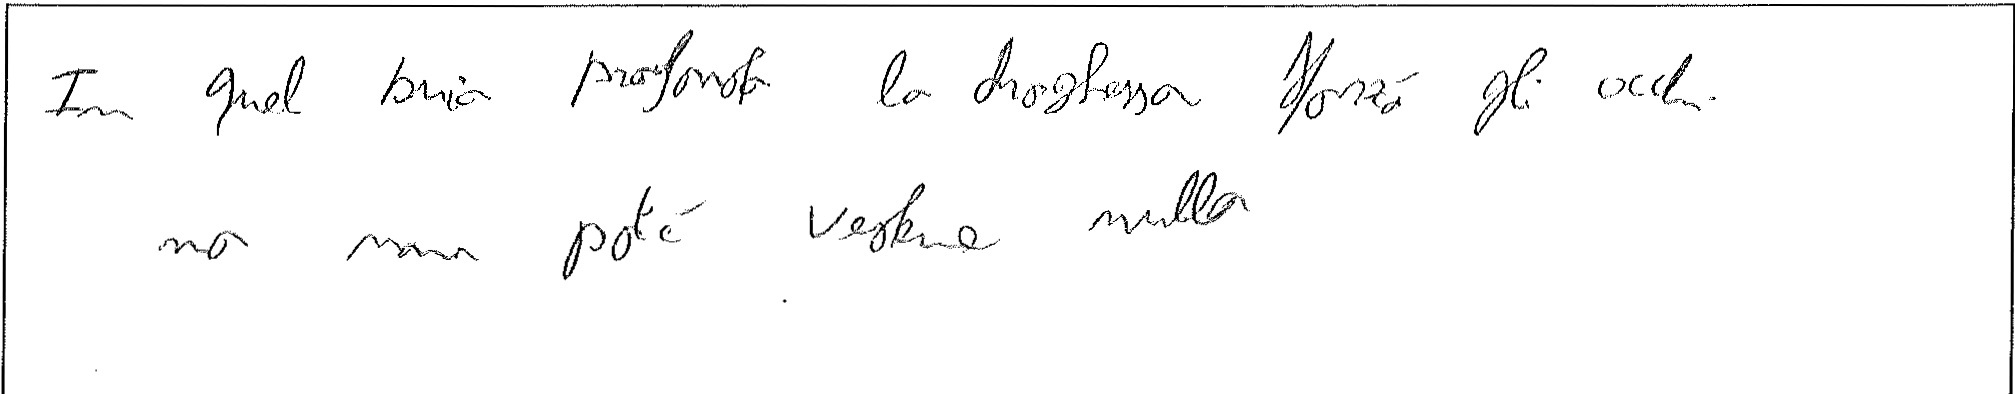 In quel buio profondo la draghessa sforzò gli occhi
ma non poté vederne nulla